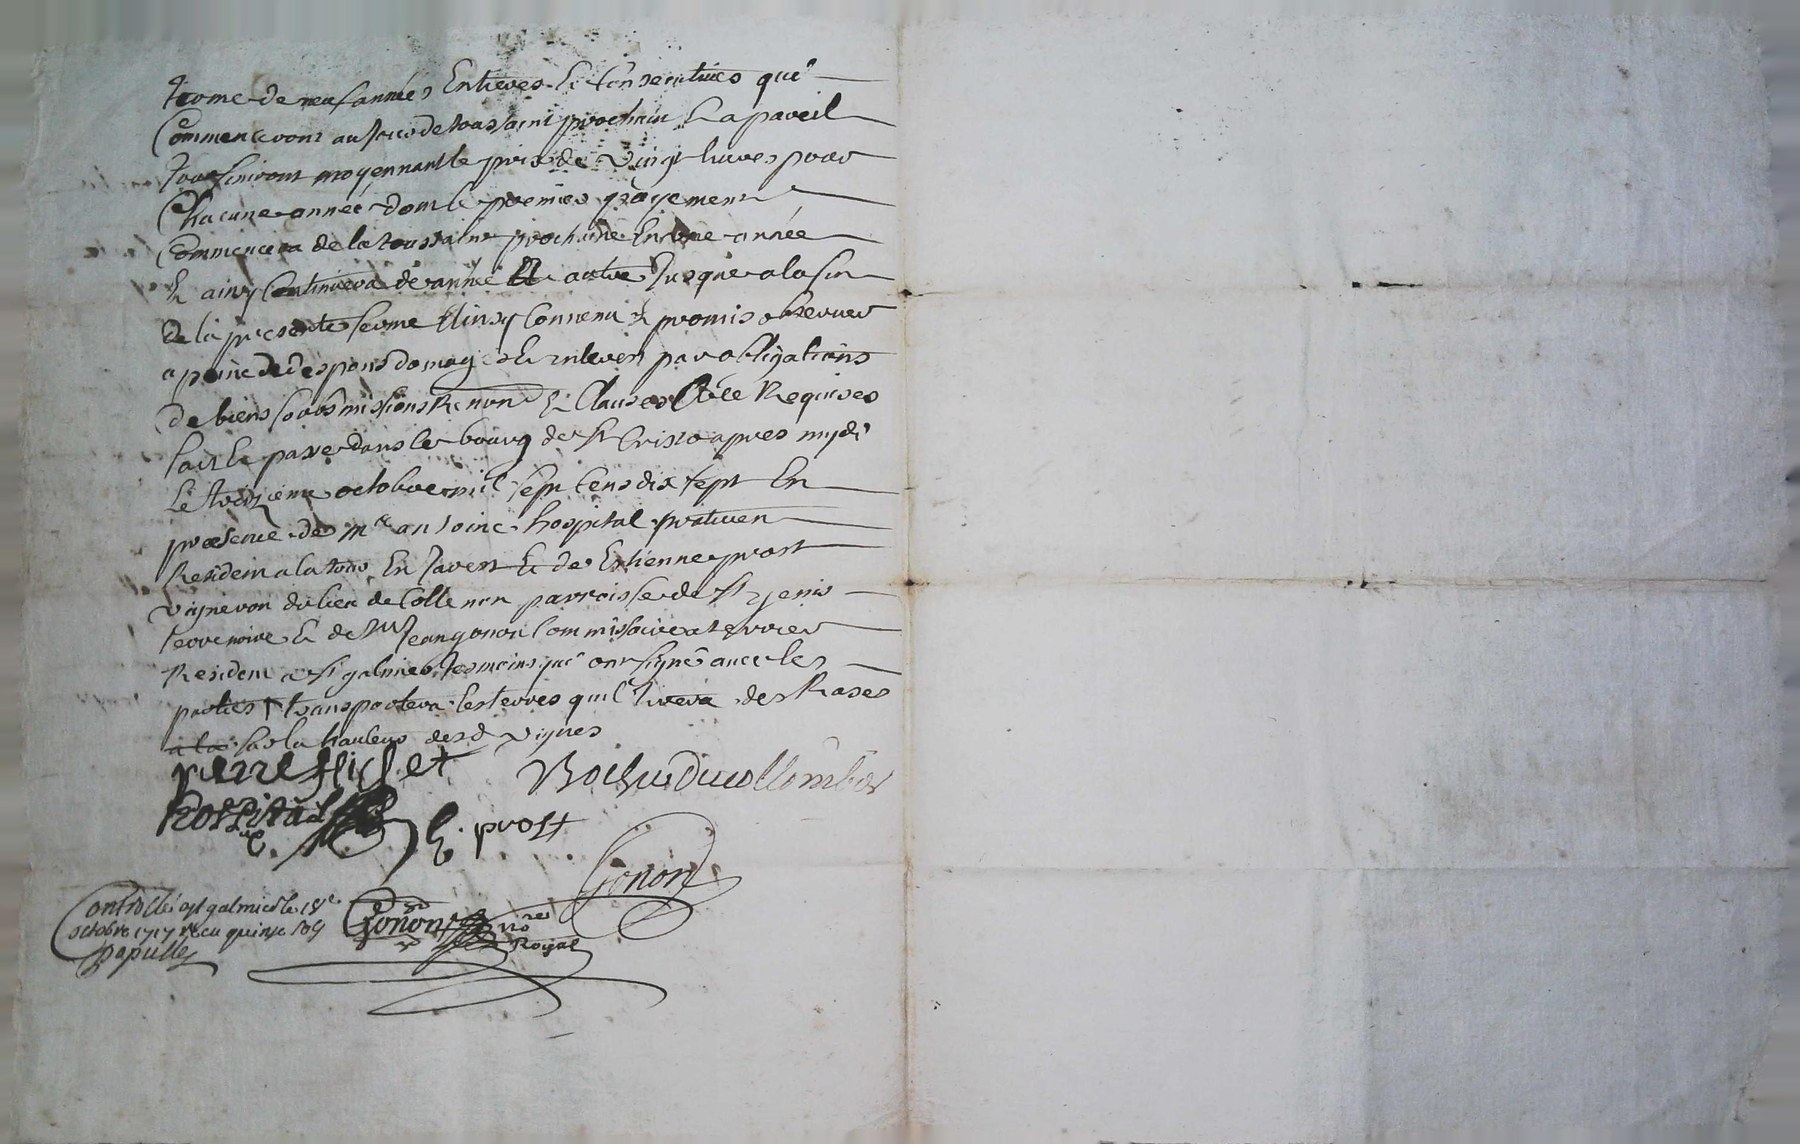 terme de neuf années Entieres & Consecutives qui
Commenceront au jour de toussaint prochain & a pareil
Jour finiront moyennant le prix de vingt livres pour
Chacune année dont le premier payement
Commencera de la toussaint prochaine En une année
& ainsy Continuera de année En autre Jusques a la fin
de la presente ferme Ainsy Convenu & promis observer
a peine de despens domages & interest par obligations
de biens soubsmissions Renon & Clauses Requises
fait & passé dans le bourg de St Cristo apres midy
Le treizieme octobre mil sept Cens dix sept En
presence de Me antoine hospital praticien
Resident a la tour En Javest & de Estienne prost
vigneron du lieu de Collenon parroisse de St genis
terrenoire & de Me Jean gonon Commissaire a terrier
Resident a St galmier tesmoins qui ont signé avec les
parties transportera les terres quil tirera des Rases
a la sur la hauteur desd vignes
pierre flichet
Rochu Ducollombier
hospital
E. prost
Gonon
Controllé a St galmier le 18e
octobre 1717 receu quinze sols
papulley
Gonon nre
Royal